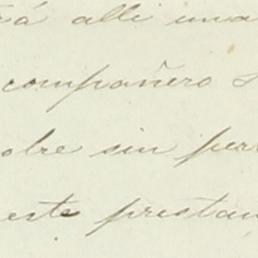 rá allí una
compañero
obre sin per
este prestan